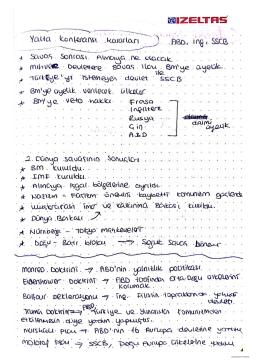 İZELTAŞ
Yalta konferansı kararları ABD, ing, SSCB
* Savaş sonrası Almanya ne olacak
* devletlere savaş ilanı BM'ye üyelik.
* Türkiye'yi istemeyen devlet ile SSCB
* BM'ye üyelik verilecek ülkeler
* BM'ye veto hakkı Fransa
İngiltere
Rusya daimi
Çin üyelik
ABD
2. Dünya savaşının sonuçları
* BM kuruldu.
* IMF kuruldu.
* Almanya işgal bölgelerine ayrıldı.
* Nazizm - Faşizm önemini kaybetti komünizm güçlendi
* Uluslararası imar ve kalkınma Bankası kuruldu.
* Dünya Bankası
* Nürnberg - Tokyo mahkemeleri
* Doğu - Batı bloku → Soğuk Savaş dönemi
monroe Doktrini → ABD'nin yalnızlık politikası.
Eisenhower Doktrini → ABD tarafından Orta Doğu ülkelerini
korumak
Balfour deklerasyonu → ing. Filistin topraklarının
devleti.
Truman doktrini → ABD, Türkiye ve Yunanistan komünizmden
etkilenmesin diye yardım yapmıştır.
Marshall Planı → ABD'nin 16 Avrupa devletine yardımı
Molotof Planı → SSCB, Doğu Avrupa ülkelerine yardım